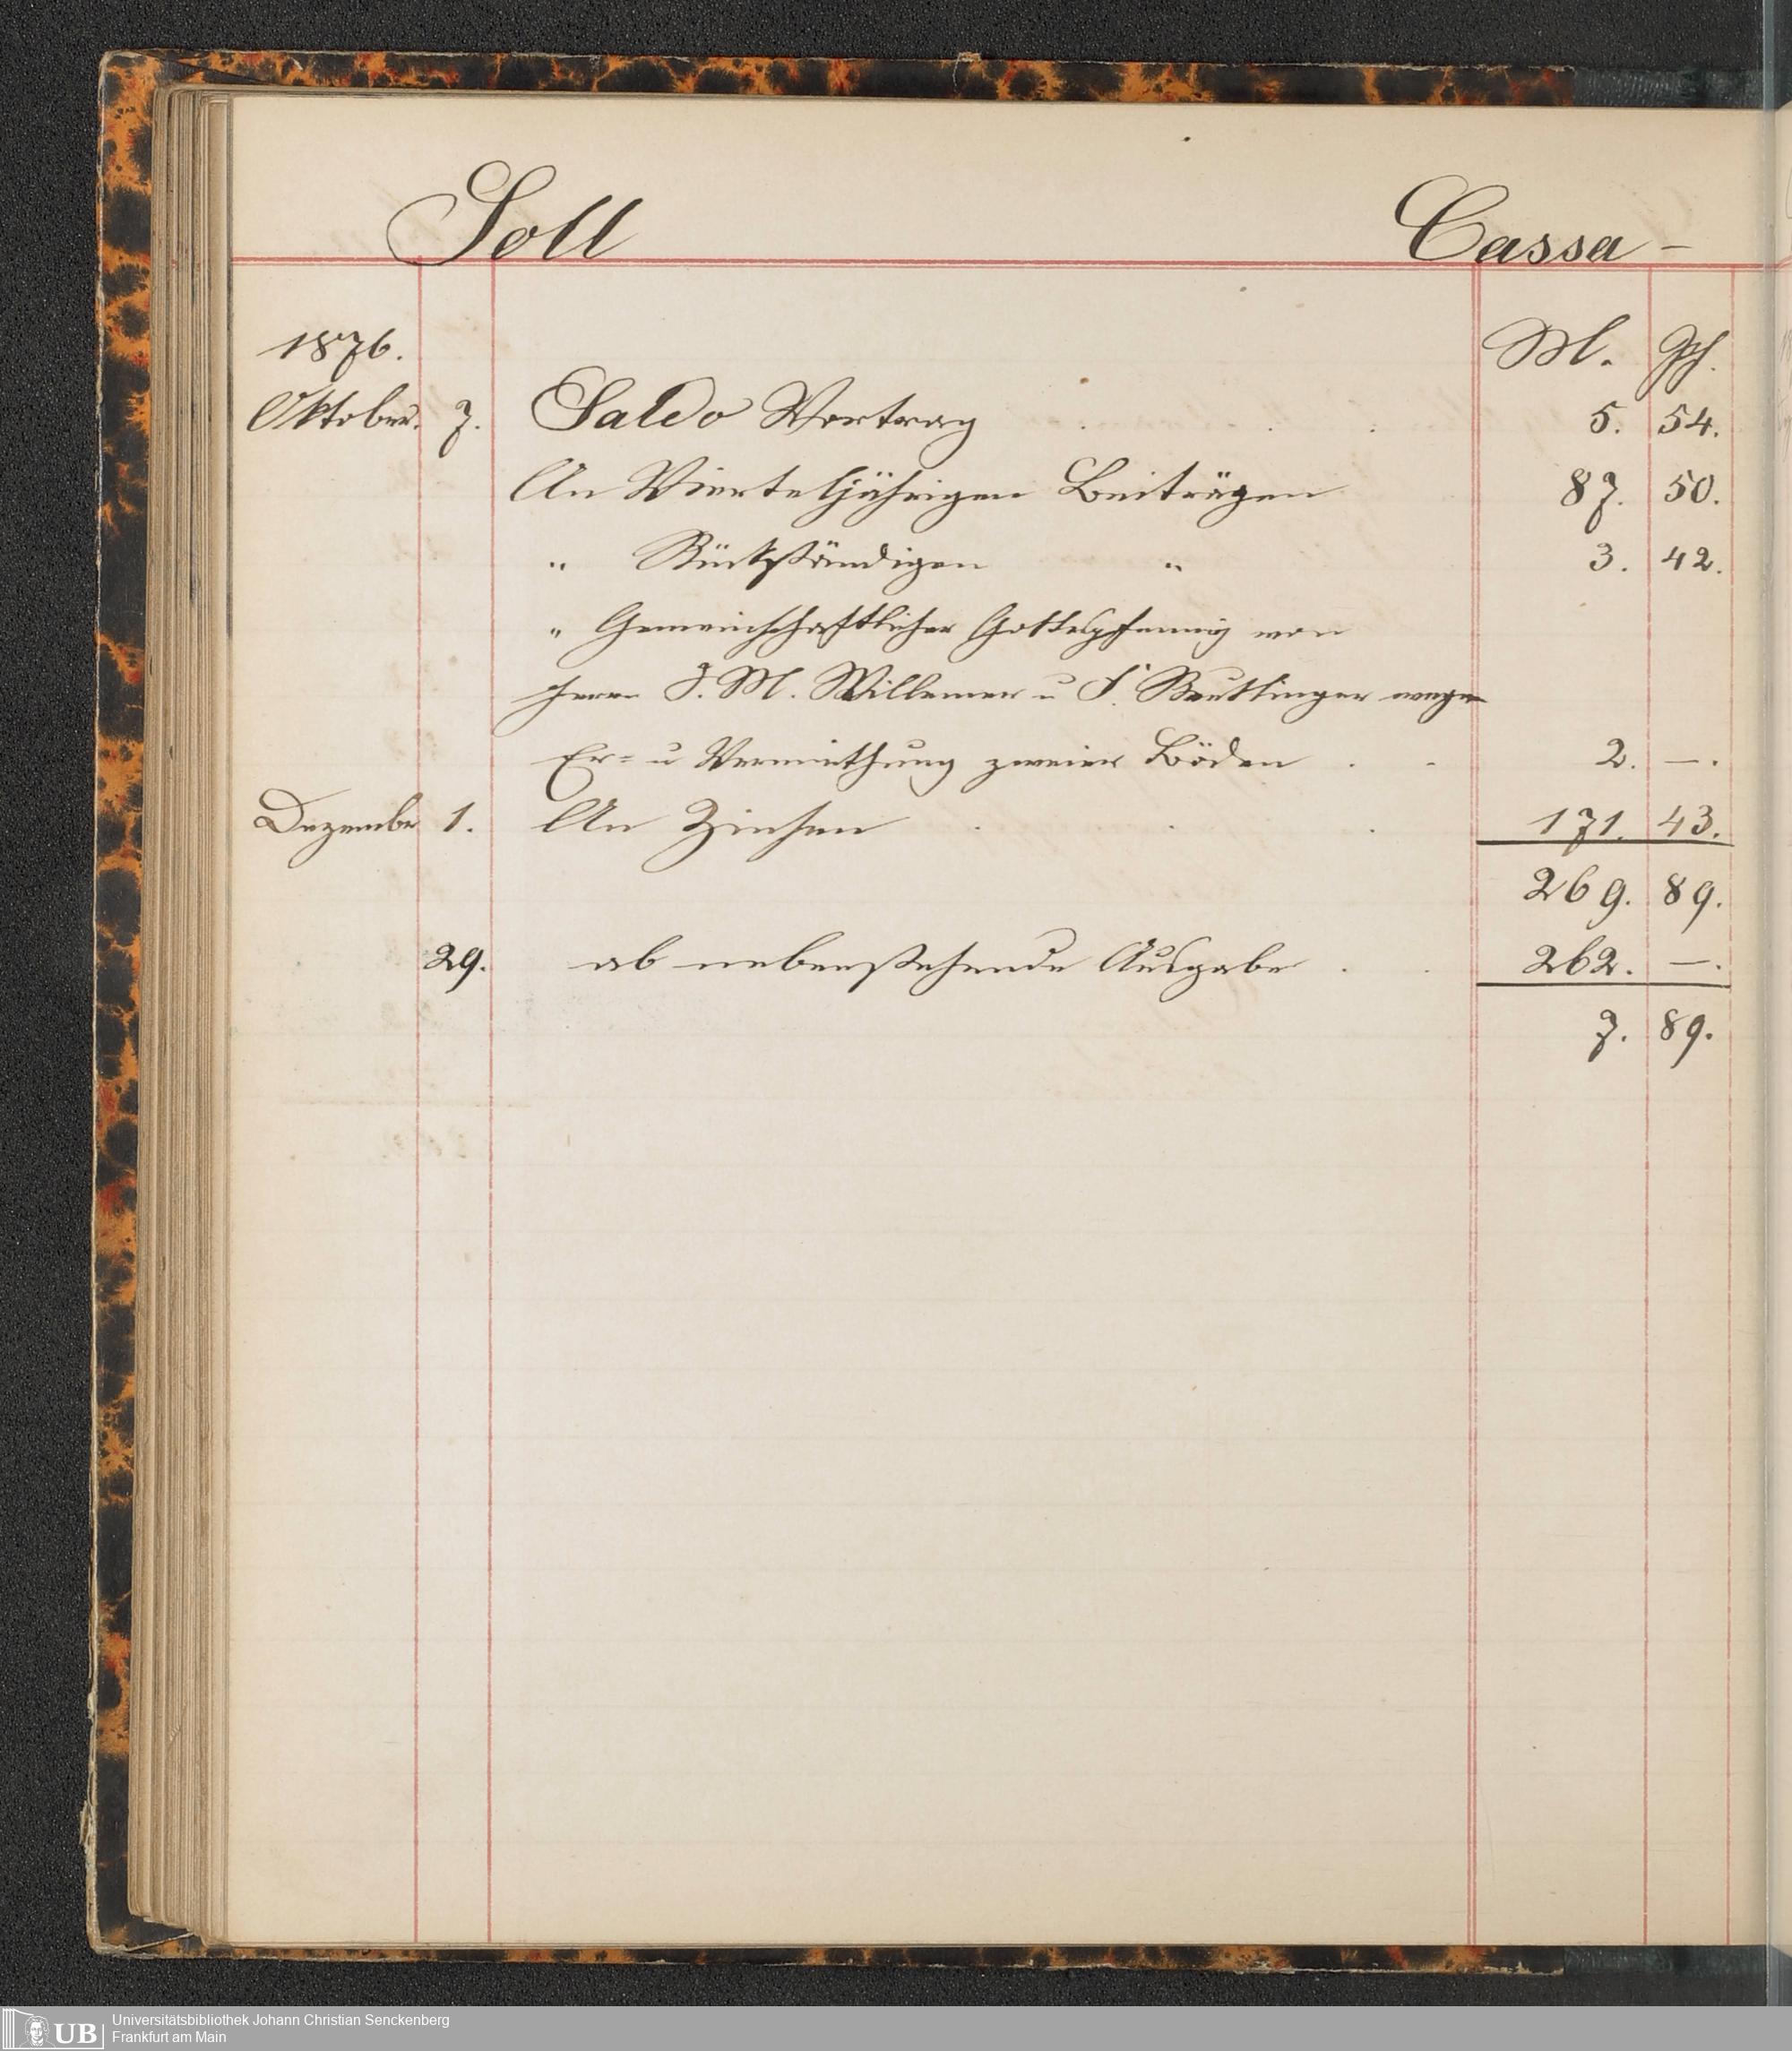 Soll Cassa -
1876. M. Pf.
Oktober. 7. Saldo Vortrag . . . 5. 54.
An Vierteljährigen Beiträgen 87. 50.
" Rückständigen " 3. 42.
" Gemeinschaftlicher Gottespfennig von
Herrn J. M. Willemer u F. Reutlinger wegen
Er= u Vermiethung zweier Böden . . 2. —.
Dezember 1. An Zinsen . . . 171. 43.
269. 89.
29. ab nebenstehende Ausgabe . . 262. —.
7. 89.
UB Universitätsbibliothek Johann Christian Senckenberg
Frankfurt am Main